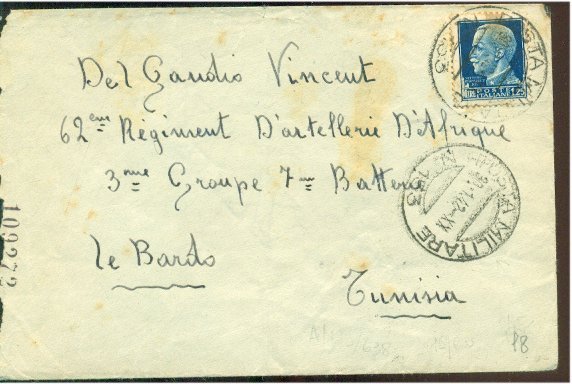 Del Gaudio Vincent
62ème Régiment D'artellerie D'Afrique
3me Groupe 7me Batterie
le Bardo
Tunisia
POSTE ITALIANE
POSTA MILITARE
N. 153
POSTA MILITARE
109272
P8